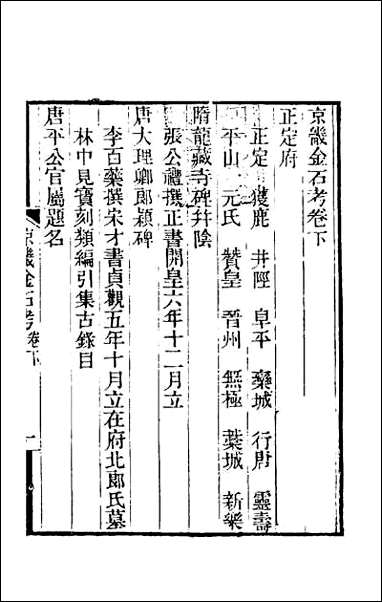 京畿金石考卷下
正定府
正定 獲鹿 井陘 阜平 欒城 行唐 靈壽
平山 元氏 贊皇 晉州 無極 藁城 新樂
隋龍藏寺碑幷陰
張公禮撰正書開皇六年十二月立
唐大理卿郎穎碑
李百藥撰宋才書貞觀五年十月立在府北郎氏墓
林中見寶刻類編引集古錄目
唐平公官屬題名
京畿金石考卷下
一